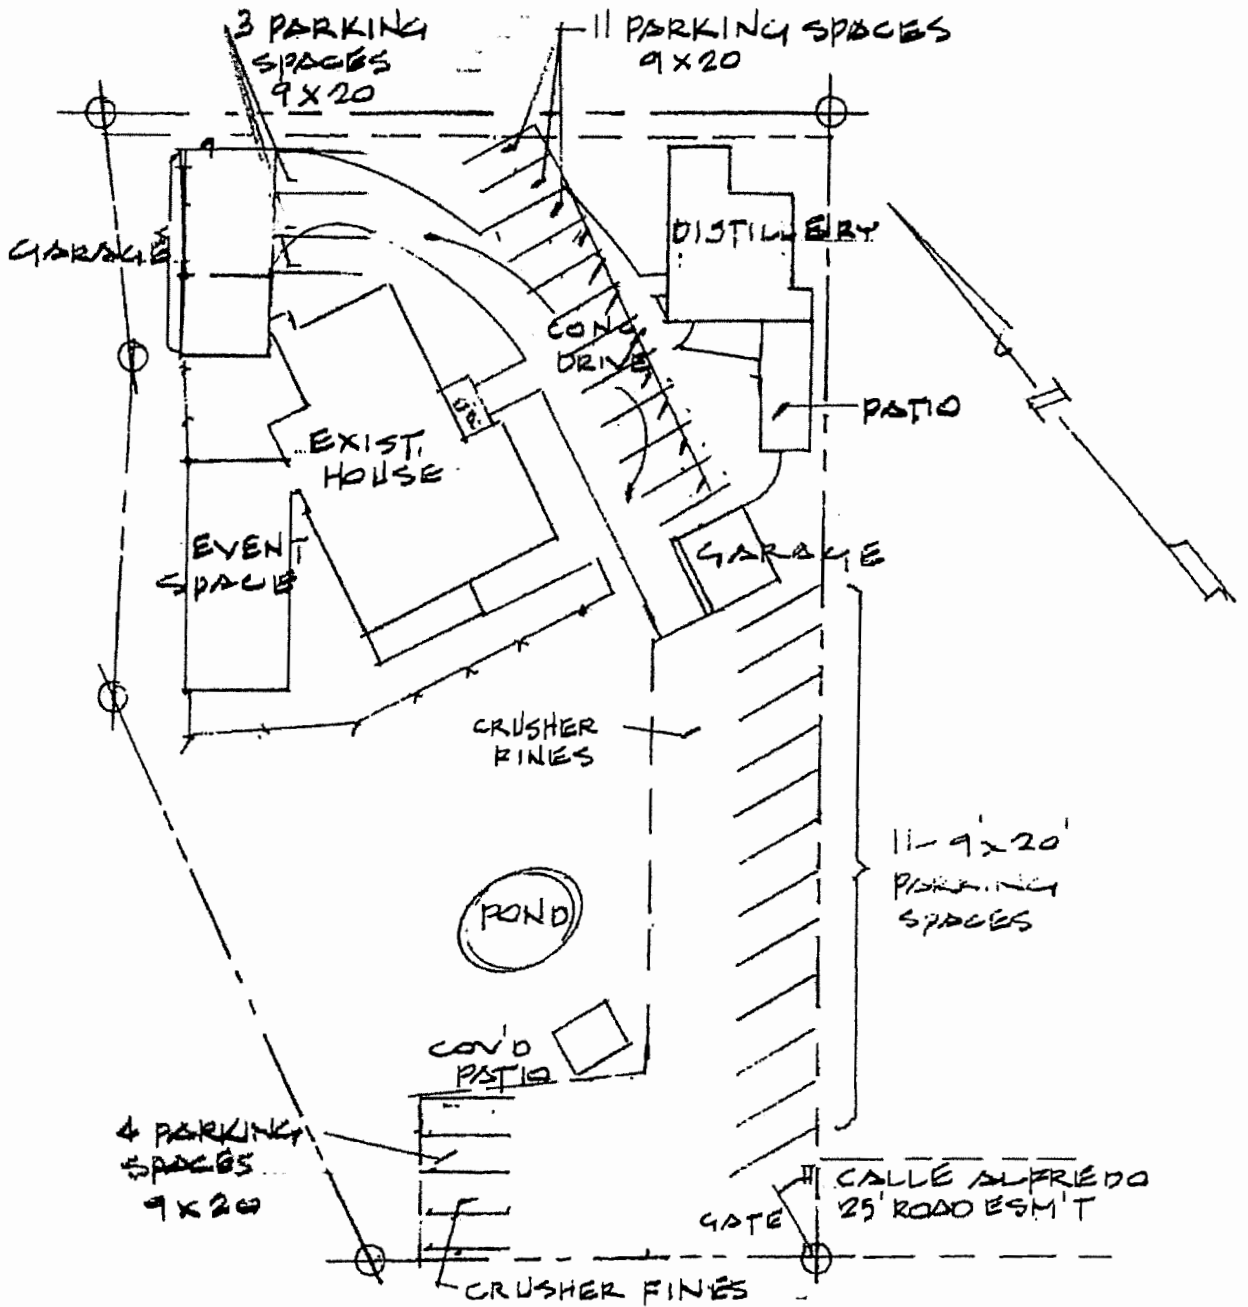 3 PARKING
SPACES
9 X 20
11 PARKING SPACES
9 X 20
GARAGE
DISTILLERY
CONC
DRIVE
PATIO
EXIST.
HOUSE
EVENT
SPACE
GARAGE
CRUSHER
FINES
11- 9'x20'
PARKING
SPACES
POND
COV'D
PATIO
4 PARKING
SPACES
9 X 20
CALLE ALFREDO
25' ROAD ESM'T
GATE
CRUSHER FINES